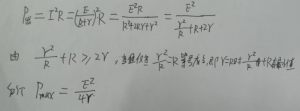 P出 = I²R = (E/(R+r))²R = E²R/(R²+2Rr+r²) = E²/(r²/R+R+2r)
由 r²/R + R ≥ 2r, 当 r²/R = R 等号成立, 即 r=R时 r²/R + R
所以 Pmax = E²/4r